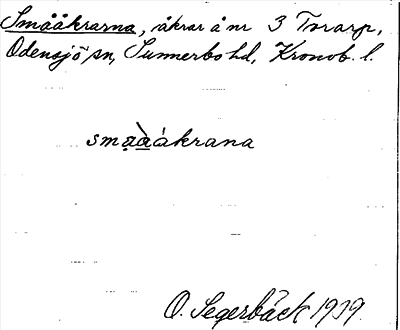 Småäkrarna, åkrar å nr 3 Torarp,
Odensjö sn, Sunnerbo hd, Kronob. l.
smạὰákrana
O. Segerbäck 1919